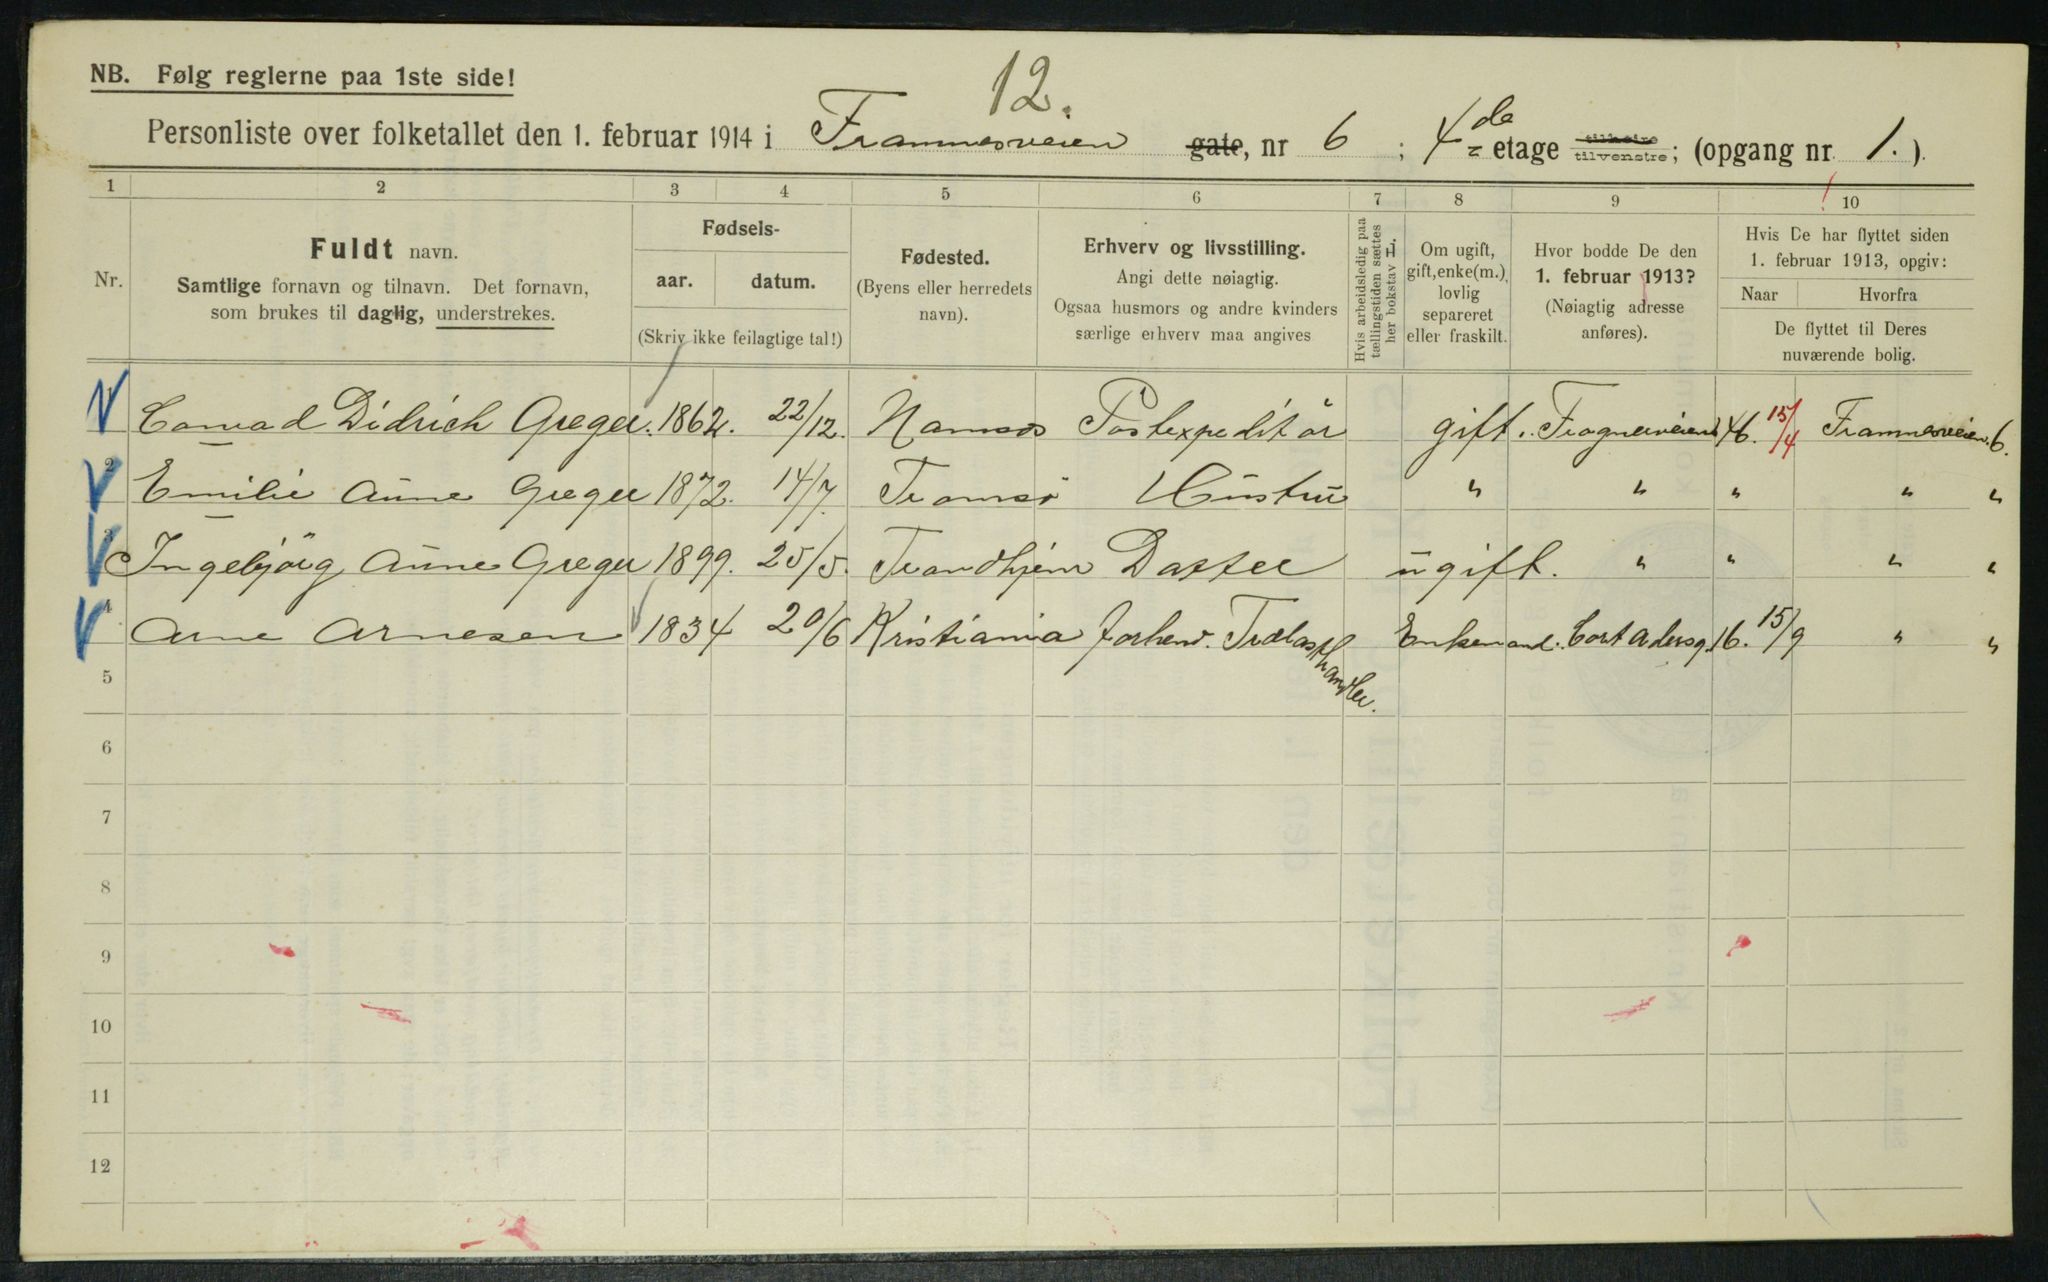 12.
NB. Følg reglerne paa 1ste side!
Personliste over folketallet den 1. februar 1914 i Framnesveien gate, nr 6 ; 4de etage tilhøire tilvenstre; (opgang nr 1.).
1 2 3 4 5 6 7 8 9 10
Nr.
Fuldt navn.
Samtlige fornavn og tilnavn. Det fornavn,
som brukes til daglig, understrekes.
Fødsels-
aar. datum.
(Skriv ikke feilagtige tal!)
Fødested.
(Byens eller herredets
navn).
Erhverv og livsstilling.
Angi dette nøiagtig.
Ogsaa husmors og andre kvinders
særlige erhverv maa angives
Hvis arbeidsledig paa
tællingstiden sættes
her bokstav L.
Om ugift,
gift, enke(m.),
lovlig
separeret
eller fraskilt.
Hvor bodde De den
1. februar 1913?
(Nøiagtig adresse
anføres).
Hvis De har flyttet siden
1. februar 1913, opgiv:
Naar Hvorfra
De flyttet til Deres
nuværende bolig.
1 Conrad Didrich Greger. 1862. 22/12. Namsos Postexpeditör gift. Frognerveien 46. 15/4 Framnesveien 6.
2 Emilie Anne Greger 1872. 14/7. Tromsö Hustru " " " " "
3 Ingebjörg Anne Greger 1899. 25/5. Trondhjem Datter ugift. " " " "
4 Arne Arnesen 1834 20/6 Kristiania forhenv. Trælasthandler. Enkemand. Cort Adelersg. 16. 15/9 " "
5
6
7
8
9
10
11
12